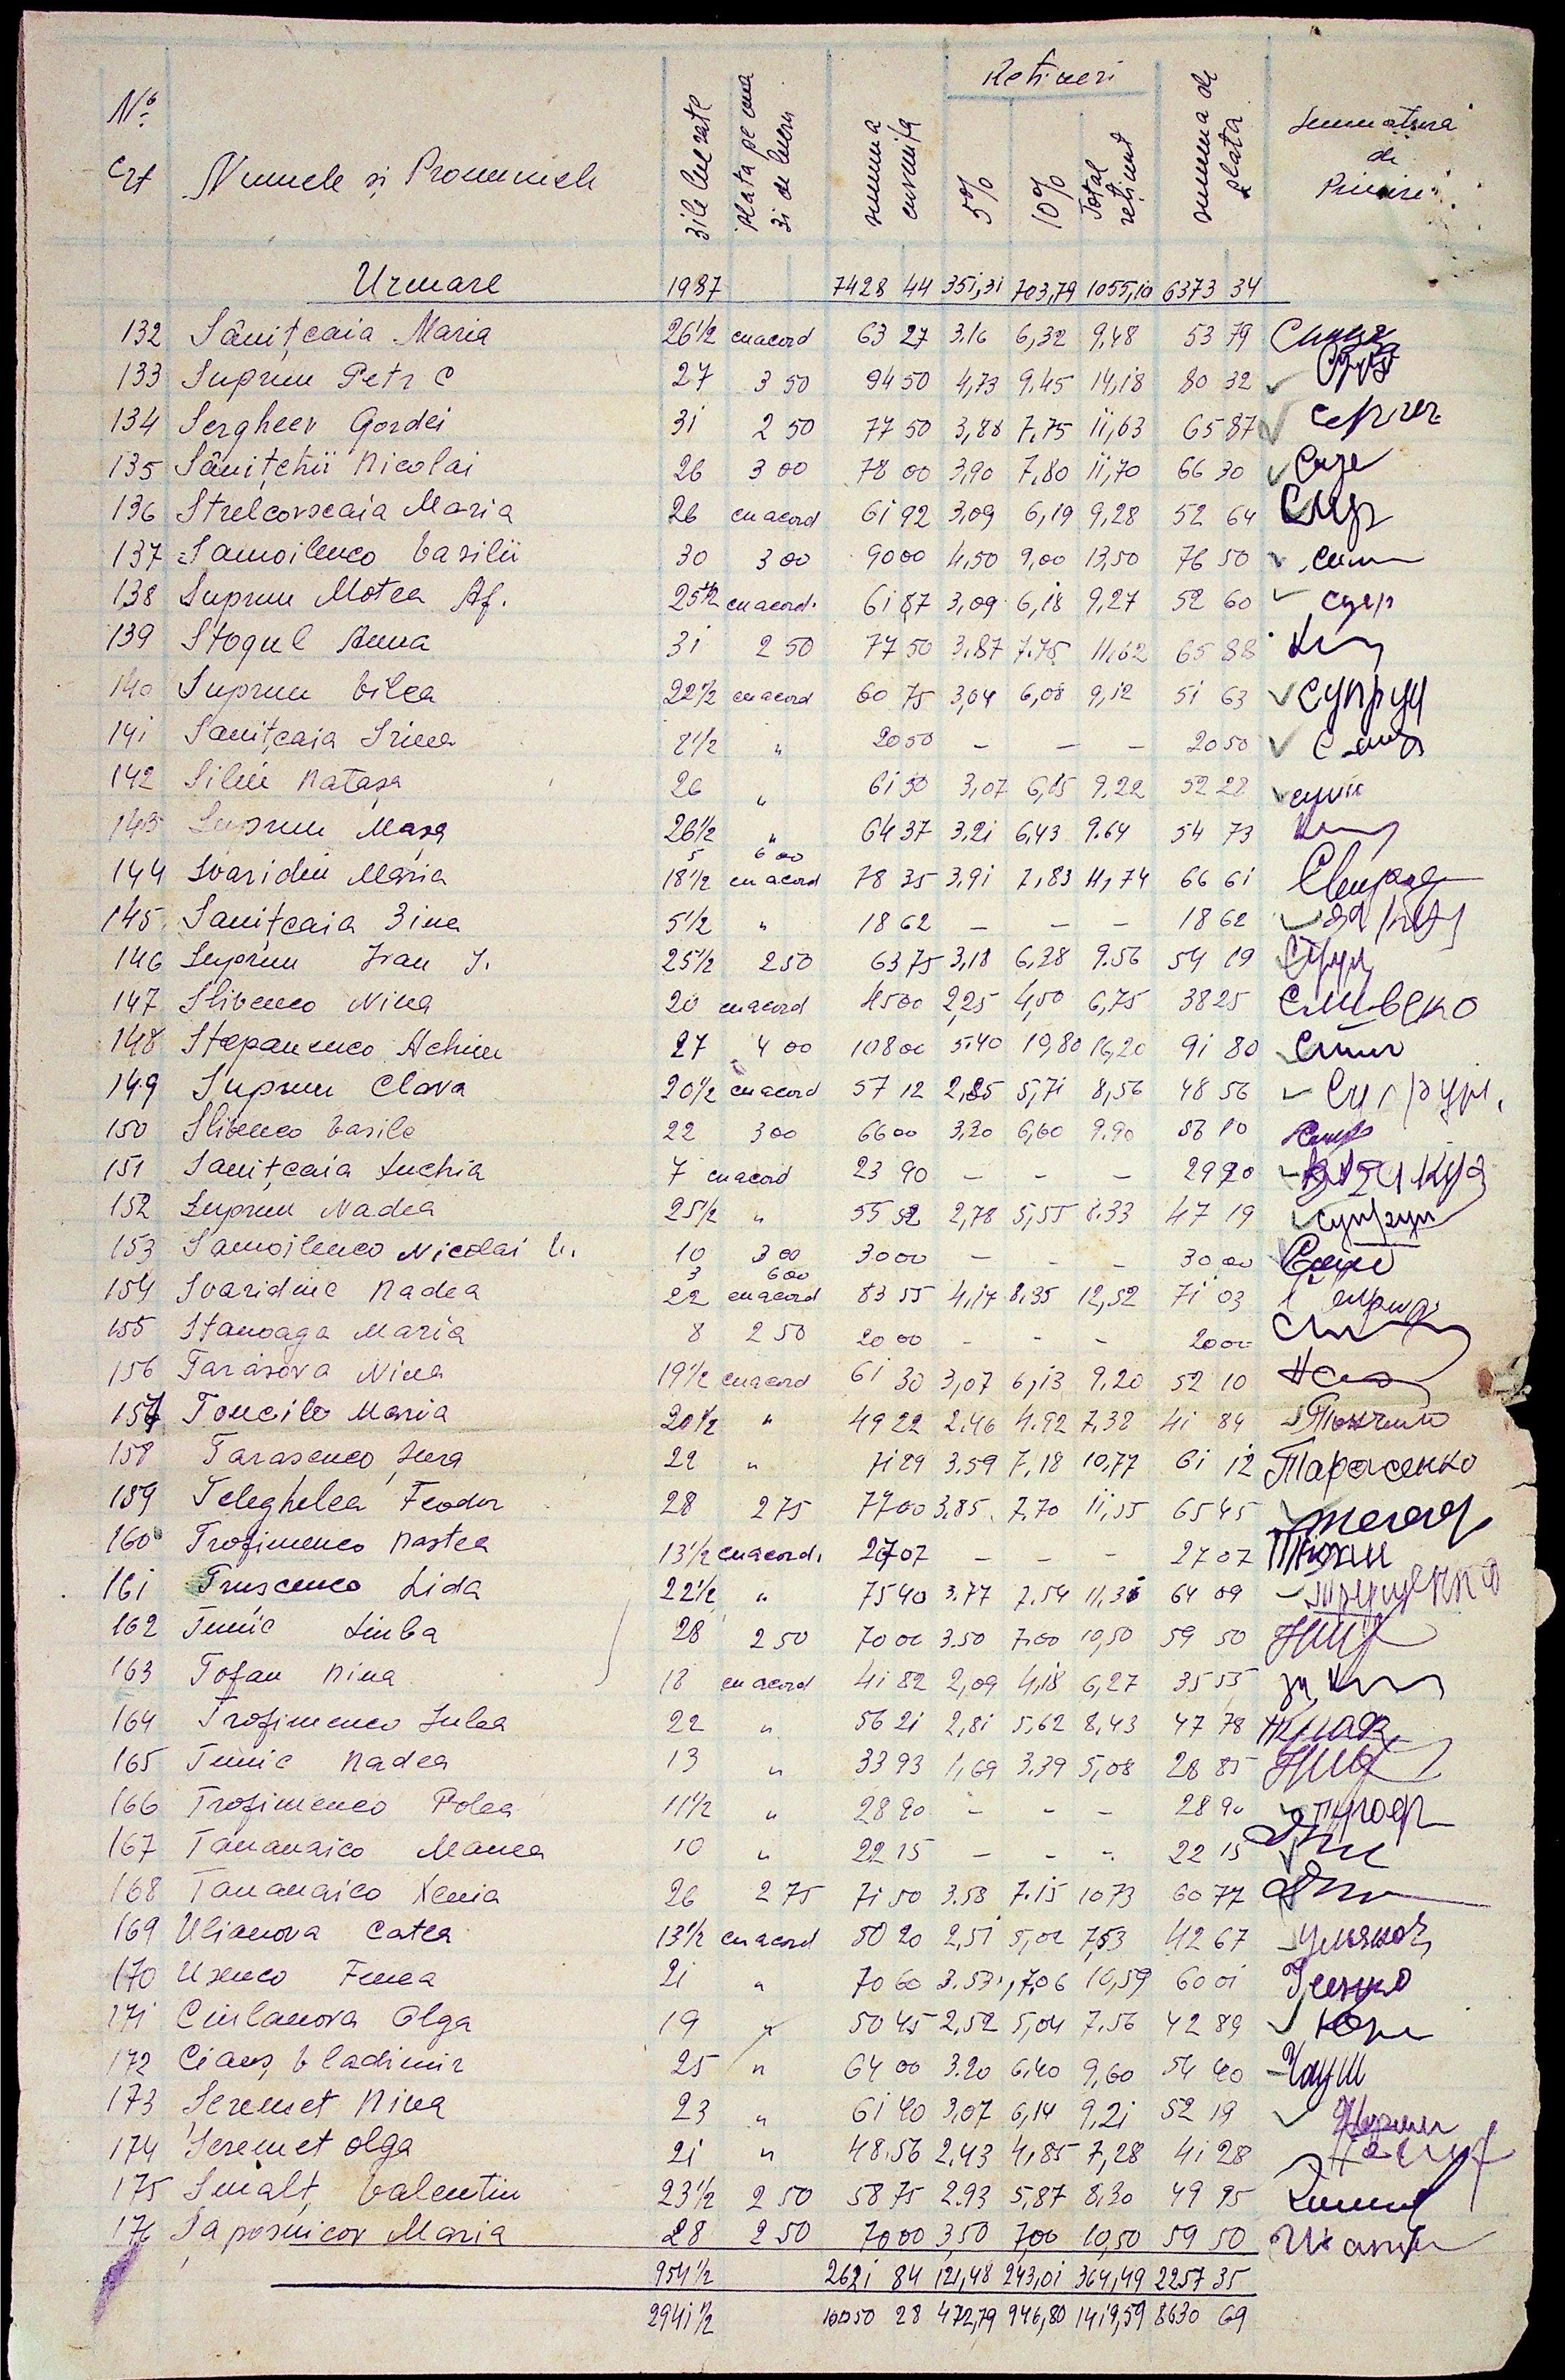 No. crt Numele și Pronumele zile lucrate plata pe una zi de lucru summa cuvenita Rețineri 5% 10% Total reținut summa de plata Semnatura de Primire
Urmare 1987 7428 44 351,31 703,79 1055,10 6373 34
132 Sânițcaia Maria 26 1/2 cu acord 63 27 3.16 6,32 9,48 53 79
133 Suprun Petr C 27 3 50 94 50 4,73 9.45 14,18 80 32
134 Sergheev Gordei 31 2 50 77 50 3,88 7.75 11,63 65 87
135 Sânițchii Nicolai 26 3 00 78 00 3,90 7,80 11,70 66 30
136 Strelcovscaia Maria 26 cu acord 61 92 3,09 6,19 9,28 52 64
137 Samoilenco Vasilii 30 3 00 90 00 4,50 9,00 13,50 76 50
138 Suprun Motea Af. 25 1/2 cu acord. 61 87 3,09 6,18 9,27 52 60
139 Stogul Anna 31 2 50 77 50 3,87 7.75 11,62 65 88
140 Suprun Vilea 22 1/2 cu acord 60 75 3,04 6,08 9,12 51 63 Супрун
141 Sanițcaia Irina 8 1/2 " 20 50 – – – 20 50
142 Silin Natașa 26 " 61 50 3,07 6,15 9,22 52 28
143 Suprun Mașa 26 1/2 " 64 37 3,21 6,43 9.64 54 73
5 6 00
144 Svaridin Maria 18 1/2 cu acord 78 35 3,91 7,83 11,74 66 61
145 Sanițcaia Zina 5 1/2 " 18 62 – – – 18 62
146 Suprun Ivan I. 25 1/2 2 50 63 75 3,18 6,38 9.56 54 19
147 Slivenco Nina 20 cu acord 45 00 2,25 4,50 6,75 38 25
148 Stepanenco Achim 27 4 00 108 00 5.40 10,80 16,20 91 80
149 Suprun Clava 20 1/2 cu acord 57 12 2,85 5,71 8,56 48 56
150 Slivenco Vasile 22 3 00 66 00 3,30 6,60 9.90 56 10
151 Sanițcaia Luchia 7 cu acord 23 90 – – – 29 20
152 Suprun Nadea 25 1/2 " 55 52 2,78 5,55 8.33 47 19
153 Samoilenco Nicolai 10 3 00 30 00 – – – 30 00
3 6 00
154 Svaridin Nadea 22 cu acord 83 55 4,17 8,35 12,52 71 03
155 Stanoaga Maria 8 2 50 20 00 - - - 20 00
156 Tarasova Nina 19 1/2 cu acord 61 30 3,07 6,13 9,20 52 10
157 Toncilo Maria 20 1/2 " 49 22 2.46 4.92 7,38 41 84
158 Tarasenco Jura 22 " 71 89 3.59 7,18 10,77 61 12 Тарасенко
159 Teleghelea Feodor 28 2 75 77 00 3,85 7,70 11,55 65 45
160 Trofimenco Nastea 13 1/2 cu acord. 27 07 – – – 27 07
161 Trușcenco Lida 22 1/2 " 75 40 3.77 7.54 11,31 64 09
162 Tunic Liuba 28 2 50 70 00 3.50 7.00 10,50 59 50
163 Tofan Nina 18 cu acord 41 82 2,09 4,18 6,27 35 55
164 Trofimenco Iulea 22 " 56 21 2,81 5,62 8,43 47 78
165 Tunic Nadea 13 " 33 93 1,69 3.39 5,08 28 85
166 Trofimenco Polea 11 1/2 " 28 90 - - - 28 90
167 Tananaico Manea 10 " 22 15 – – - 22 15
168 Tananaico Xenia 26 2 75 71 50 3.58 7.15 10 73 60 77
169 Ulianova Catea 13 1/2 cu acord 50 20 2,51 5,02 7,53 42 67
170 Usenco Fenea 21 " 70 60 3.53 7,06 10,59 60 01
171 Ciulanova Olga 19 " 50 45 2,52 5,04 7.56 42 89
172 Ciauș Vladimir 25 " 64 00 3.20 6,40 9,60 54 40 Чауш
173 Șeremet Nina 23 " 61 40 3,07 6,14 9,21 52 19
174 Șeremet Olga 21 " 48.56 2,43 4,85 7,28 41 28
175 Șmalț Valentin 23 1/2 2 50 58 75 2.93 5,87 8,80 49 95
176 Șapoșnicov Maria 28 2 50 70 00 3,50 7,00 10,50 59 50
954 1/2 2621 84 121,48 243,01 364,49 2257 35
2941 1/2 10050 28 472,79 946,80 1419,59 8630 69